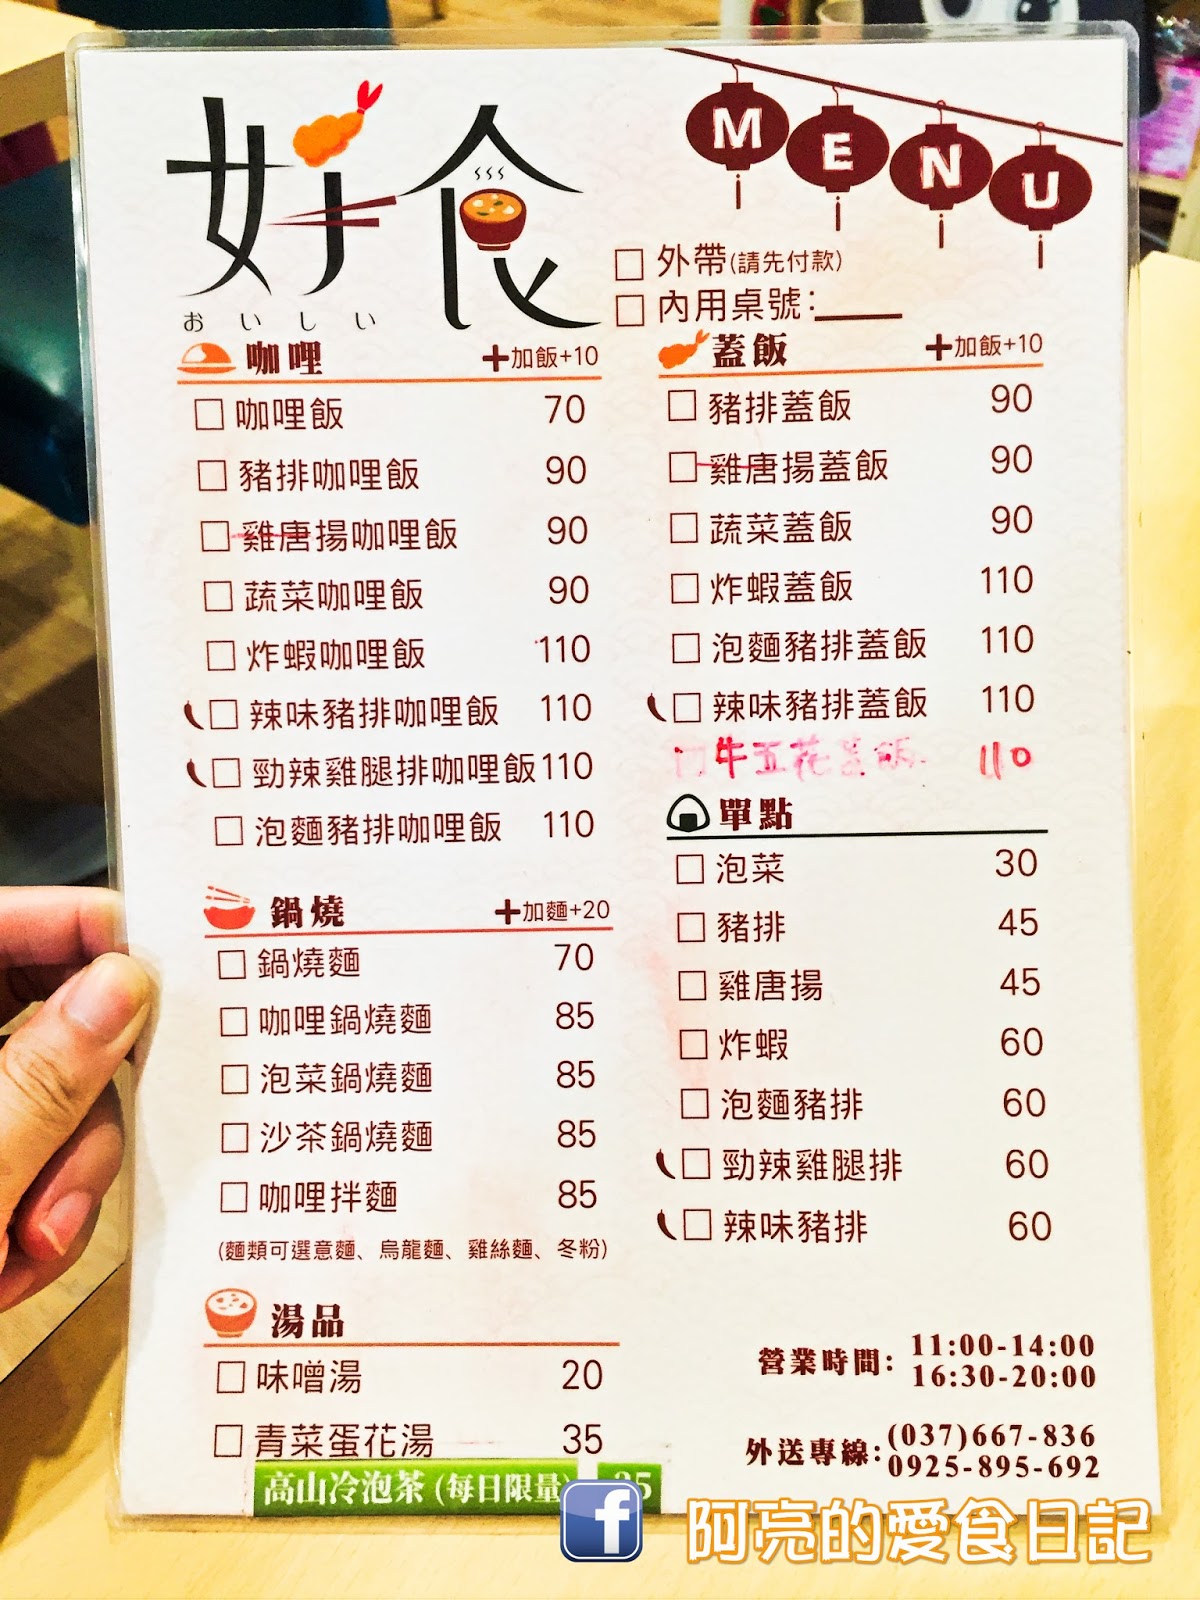 好食
おいしい
MENU
□ 外帶(請先付款)
□ 內用桌號:____
咖哩 +加飯+10
□ 咖哩飯 70
□ 豬排咖哩飯 90
□ 雞唐揚咖哩飯 90
□ 蔬菜咖哩飯 90
□ 炸蝦咖哩飯 110
□ 辣味豬排咖哩飯 110
□ 勁辣雞腿排咖哩飯 110
□ 泡麵豬排咖哩飯 110
鍋燒 +加麵+20
□ 鍋燒麵 70
□ 咖哩鍋燒麵 85
□ 泡菜鍋燒麵 85
□ 沙茶鍋燒麵 85
□ 咖哩拌麵 85
(麵類可選意麵、烏龍麵、雞絲麵、冬粉)
湯品
□ 味噌湯 20
□ 青菜蛋花湯 35
高山冷泡茶(每日限量) 35
蓋飯 +加飯+10
□ 豬排蓋飯 90
□ 雞唐揚蓋飯 90
□ 蔬菜蓋飯 90
□ 炸蝦蓋飯 110
□ 泡麵豬排蓋飯 110
□ 辣味豬排蓋飯 110
□ 牛五花蓋飯 110
單點
□ 泡菜 30
□ 豬排 45
□ 雞唐揚 45
□ 炸蝦 60
□ 泡麵豬排 60
□ 勁辣雞腿排 60
□ 辣味豬排 60
營業時間: 11:00-14:00
16:30-20:00
外送專線: (037)667-836
0925-895-692
f 阿亮的愛食日記